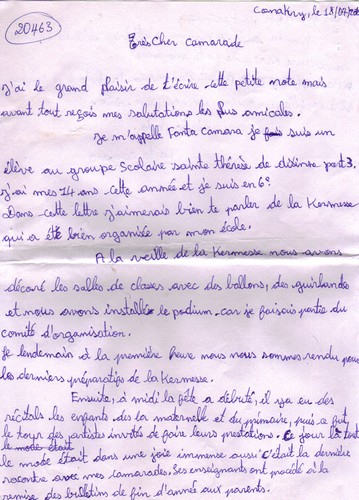 Conakry, le 18/07/
20463
Très Cher Camarade
j'ai le grand plaisir de t'écrire cette petite note mais
avant tout reçois mes salutations les plus amicales.
Je m'appelle Fanta Camara je suis un
élève au groupe Scolaire sainte thérèse de dixinn port 3.
j'ai mes 14 ans cette année et je suis en 6e
Dans cette lettre j'aimerais bien te parler de la Kermesse
qui a été bien organisée par mon école.
A la veille de la Kermesse nous avons
décoré les salles de classes avec des ballons, des guirlandes
et nous avons installés le podium car je faisais partie du
comité d'organisation.
Le lendemain à la première heure nous nous sommes rendu pour
les derniers préparatifs de la Kermesse.
Ensuite, à midi la fête a débuté, il y a eu des
récitals les enfants de la maternelle et du primaire, puis ce fut
le tour des artistes invités de faire leurs prestations. Ce jour là tout
le monde était
le monde était dans une joie immense aussi c'était la dernière
rencontre avec mes camarades. Les enseignants ont procédé à la
remise des bulletins de fin d'année aux parents.